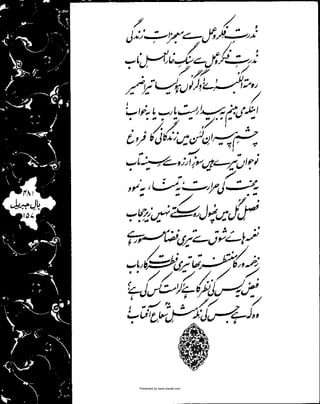 ندرتِ فکر و عمل سے معجزاتِ زندگی
ندرتِ فکر و عمل سے سنگِ خارا لعلِ ناب
رومۃ الکبریٰ! دگرگوں ہوگیا تیرا ضمیر
اینکہ می بینم بہ بیداری ست یارب یا بہ خواب!
چشمِ پیرانِ کہن میں زندگانی کا فروغ
نوجواں تیرے ہیں سوزِ آرزو سے سینہ تاب
یہ محبت کی حرارت، یہ تمنّا، یہ نمود
فصلِ گل میں پھول رہ سکتے نہیں زیرِ حجاب
نغمہ ہائے شوق سے تیری فضا معمور ہے
زخمہ ور کا منتظر تھا تیری فطرت کا رباب
فیض یہ کس کی نظر کا ہے؟ کرامت کس کی ہے؟
وہ کہ ہے جس کی نگہ مثلِ شعاعِ آفتاب!
۴۸۱
بالِ جبریل
۱۵۷
Presented by www.ziaraat.com